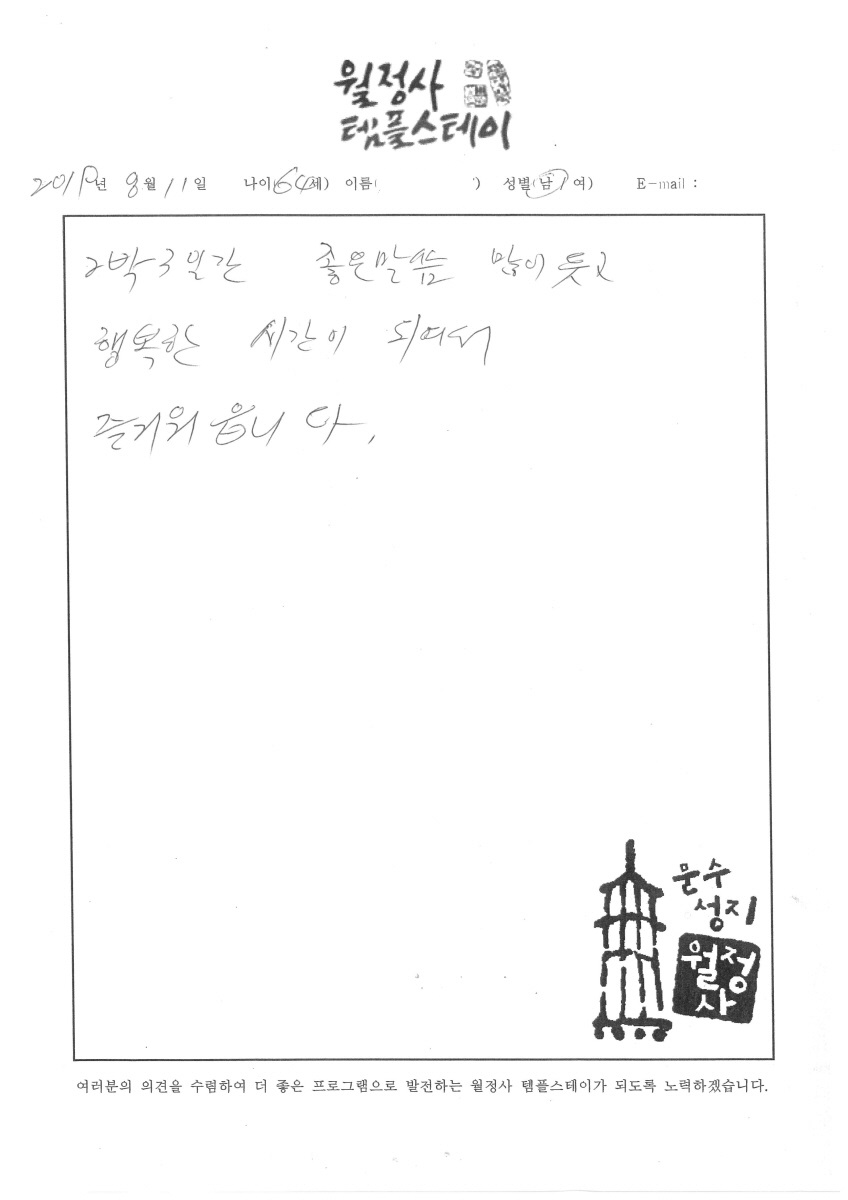 월정사
템플스테이
2019년 8월 11일 나이(64세) 이름( ) 성별(남/여) E-mail :
2박3일간 좋은말씀 많이 듯고
행복한 시간이 되여서
즐거워읍니다.
문수
성지
월정
사
여러분의 의견을 수렴하여 더 좋은 프로그램으로 발전하는 월정사 템플스테이가 되도록 노력하겠습니다.